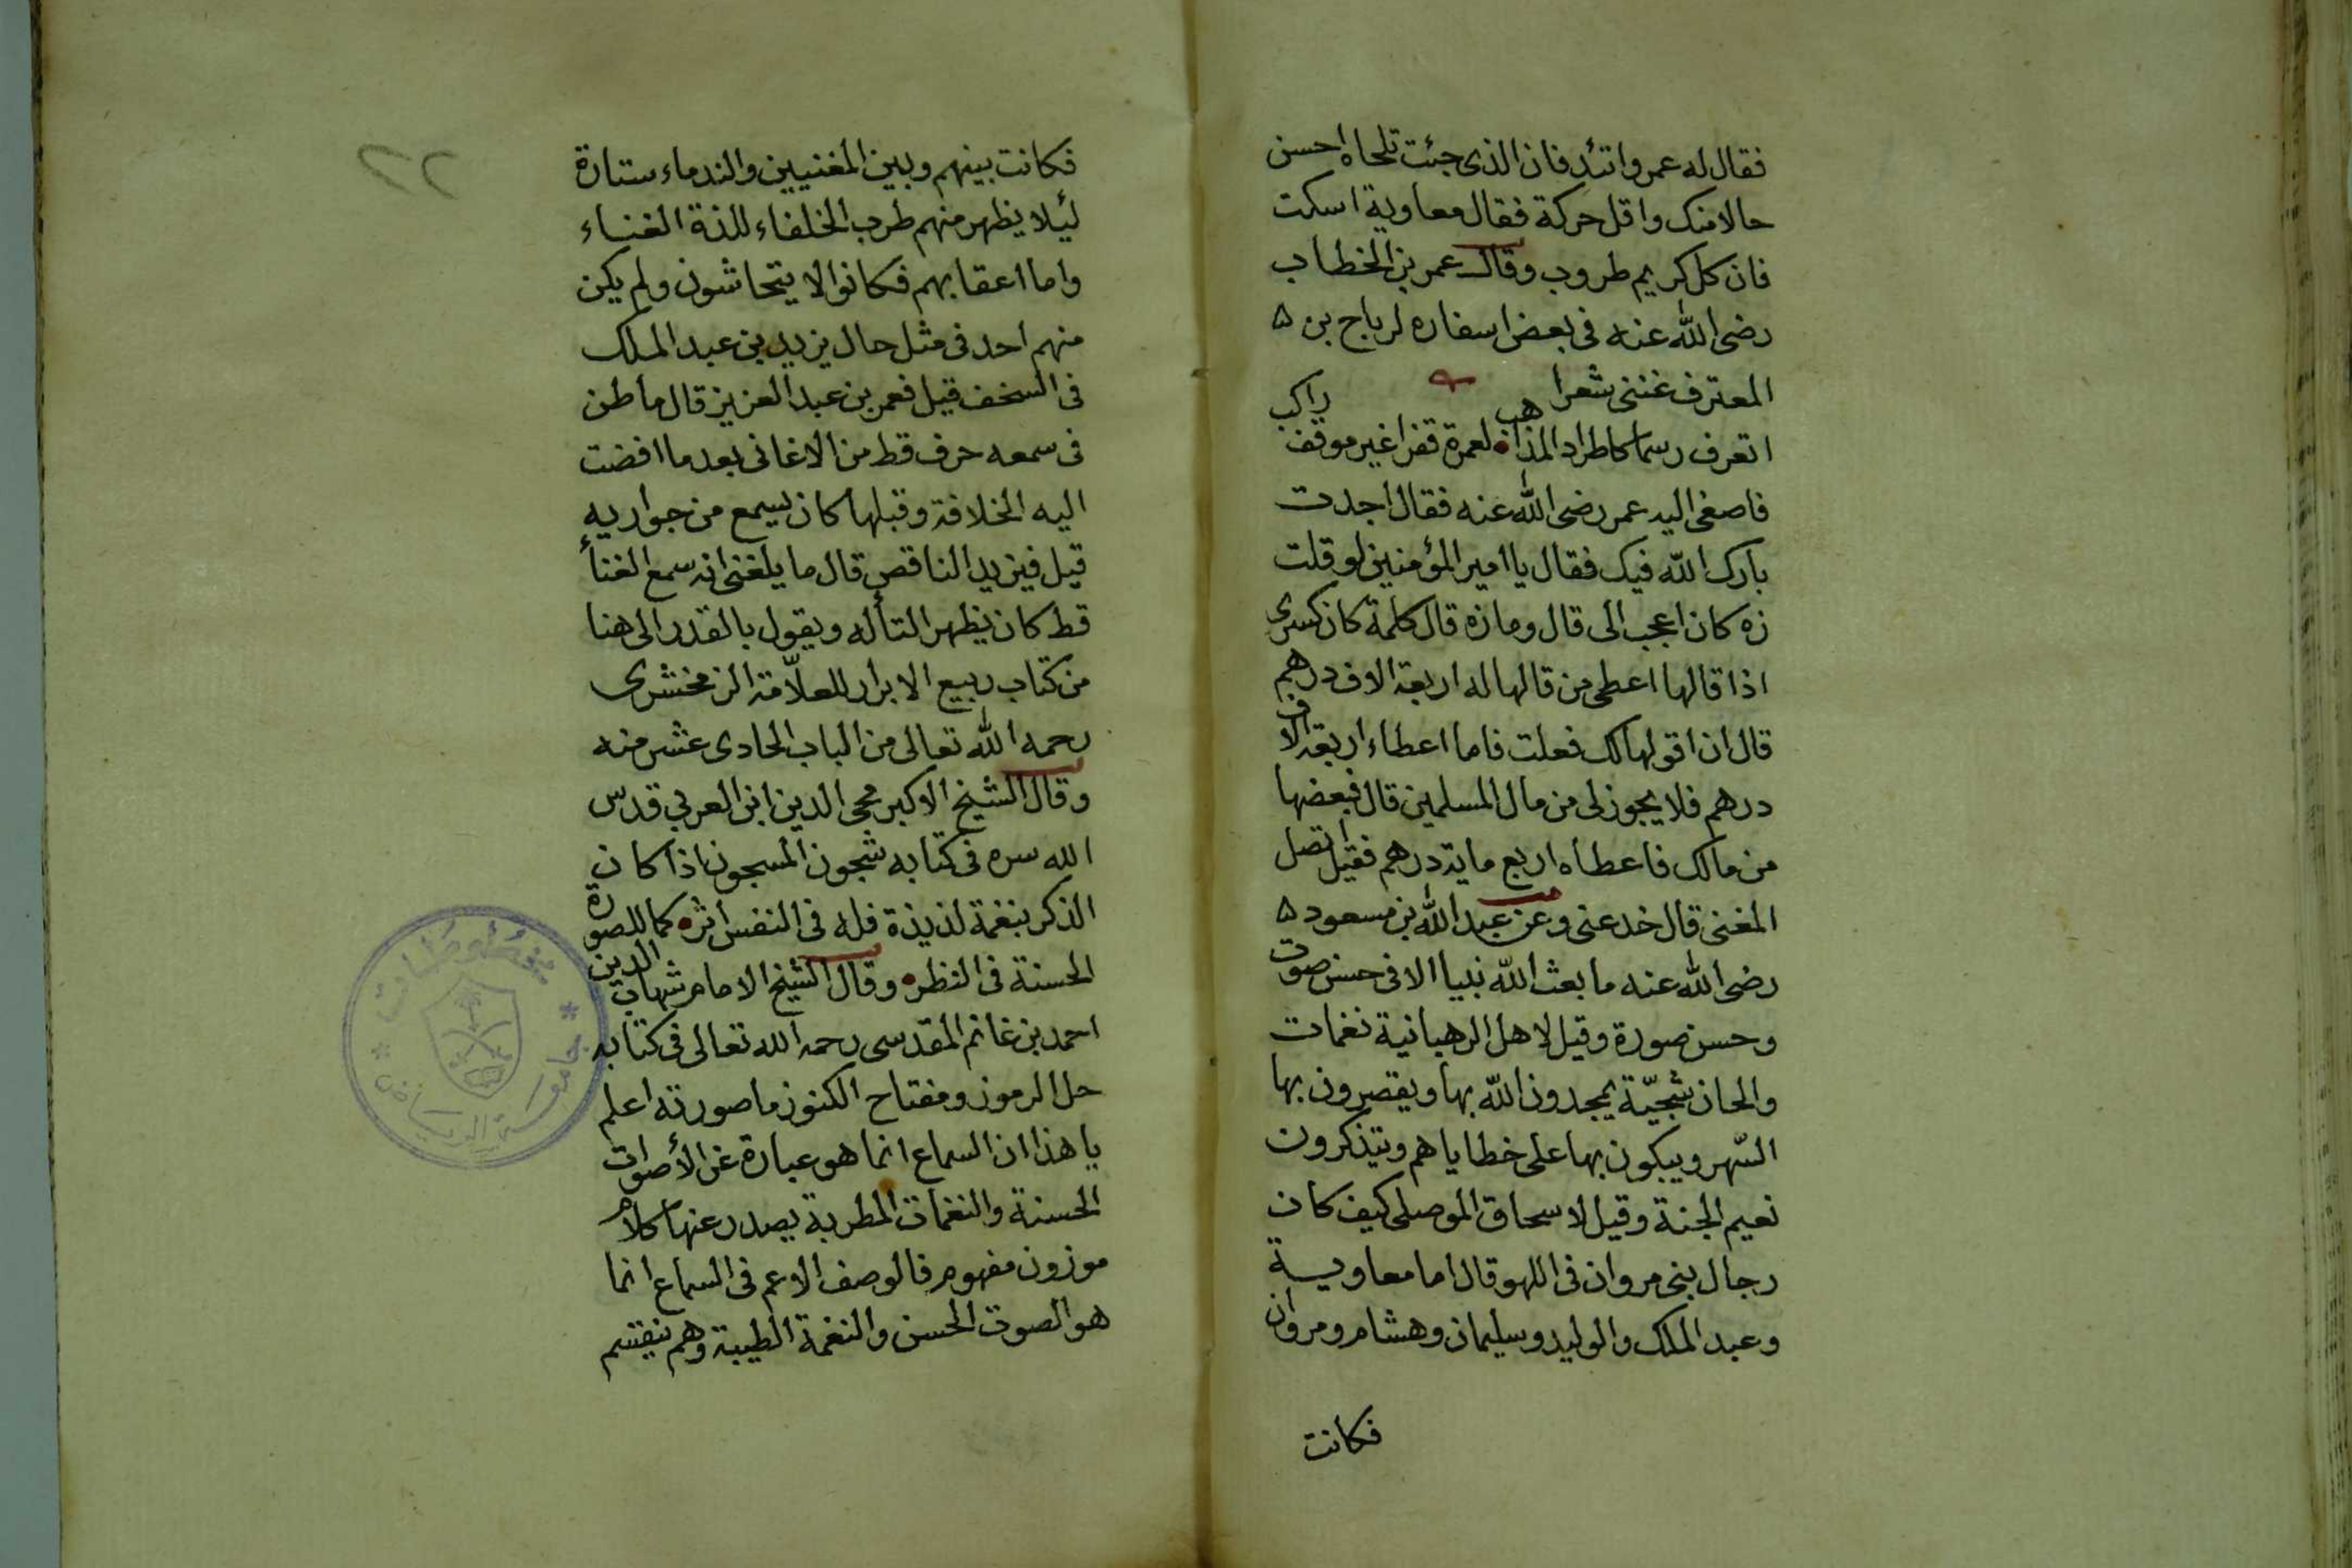 فقال له عمرو اتئد فان الذى جئت تلحاه احسن
حالا منك واقل حركة فقال معاوية اسكت
فان كل كريم طروب وقال عمر بن الخطاب
رضى الله عنه فى بعض اسفاره لرباح بن ه
المعترف غننى شعرا
اتعرف رسما كاطراد المذاهب لعمرة قفرا غير موقف راكب
فاصغى اليه عمر رضى الله عنه فقال اجدت
بارك الله فيك فقال يا امير المؤمنين لو قلت
زه كان اعجب الى قال وما زه قال كلمة كان كسرى
اذا قالها اعطى من قالها له اربعة الاف درهم
قال ان اقولها لك فعلت فاما اعطاء اربعة الاف
درهم فلا يجوز لى من مال المسلمين قال فبعضها
من مالك فاعطاه اربع ماية درهم فقيل اتصل
المغنى قال خدعنى وعن عبد الله بن مسعود ه
رضى الله عنه ما بعث الله نبيا الا فى حسن صوت
وحسن صورة وقيل لاهل الرهبانية نغمات
والحان شجيّة يمجدون الله بها ويقصرون بها
السّهر ويبكون بها على خطاياهم ويتذكرون
نعيم الجنة وقيل لاسحاق الموصلى كيف كان
رجال بنى مروان فى اللهو قال اما معاوية
وعبد الملك والوليد وسليمان وهشام ومروان
فكانت
٢٢
فكانت بينهم وبين المغنيين والندماء ستارة
لئيلا يظهر منهم طرب الخلفاء للذة الغناء
واما اعقابهم فكانوا لا يتحاشون ولم يكن
منهم احد فى مثل حال يزيد بن عبد الملك
فى السخف قيل فعمر بن عبد العزيز قال ما طن
فى سمعه حرف قط من الاغانى بعد ما افضت
اليه الخلافة وقبلها كان يسمع من جواريه
قيل فيزيد الناقص قال ما بلغنى انه سمع الغناء
قط كان يظهر التأله ويقول بالقدر الى هنا
من كتاب ربيع الابرار للعلّامة الزمخشرى
رحمه الله تعالى من الباب الحادى عشر منه
وقال الشيخ الاكبر محى الدين ابن العربي قدس
الله سره فى كتابه شجون المسجون اذا كان
الذكر بنغمة لذيذة فله فى النفس اثر كما للصورة
الحسنة فى النظر وقال الشيخ الامام شهاب الدين
احمد بن غانم المقدسى رحمه الله تعالى فى كتابه
حل الرموز ومفتاح الكنوز ما صورته اعلم
يا هذا ان السماع انما هو عبارة عن الأصوات
الحسنة والنغمات المطربة يصدر عنها كلام
موزون مفهوم فالوصف الاعم فى السماع انما
هو الصوت الحسن والنغمة الطيبة وهم ينقسم
جامعة الرياض